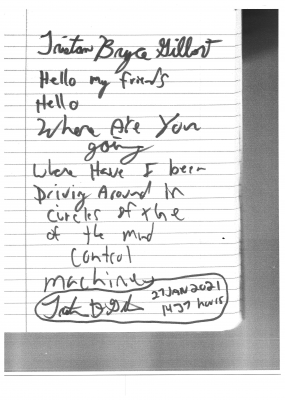 Tristan Bryce Gillott
Hello my friends
Hello
Where Are You
going
Where Have I been
Driving Around In
Circles of the
of the mind
Control
machines
27 JAN 2021
1437 hours